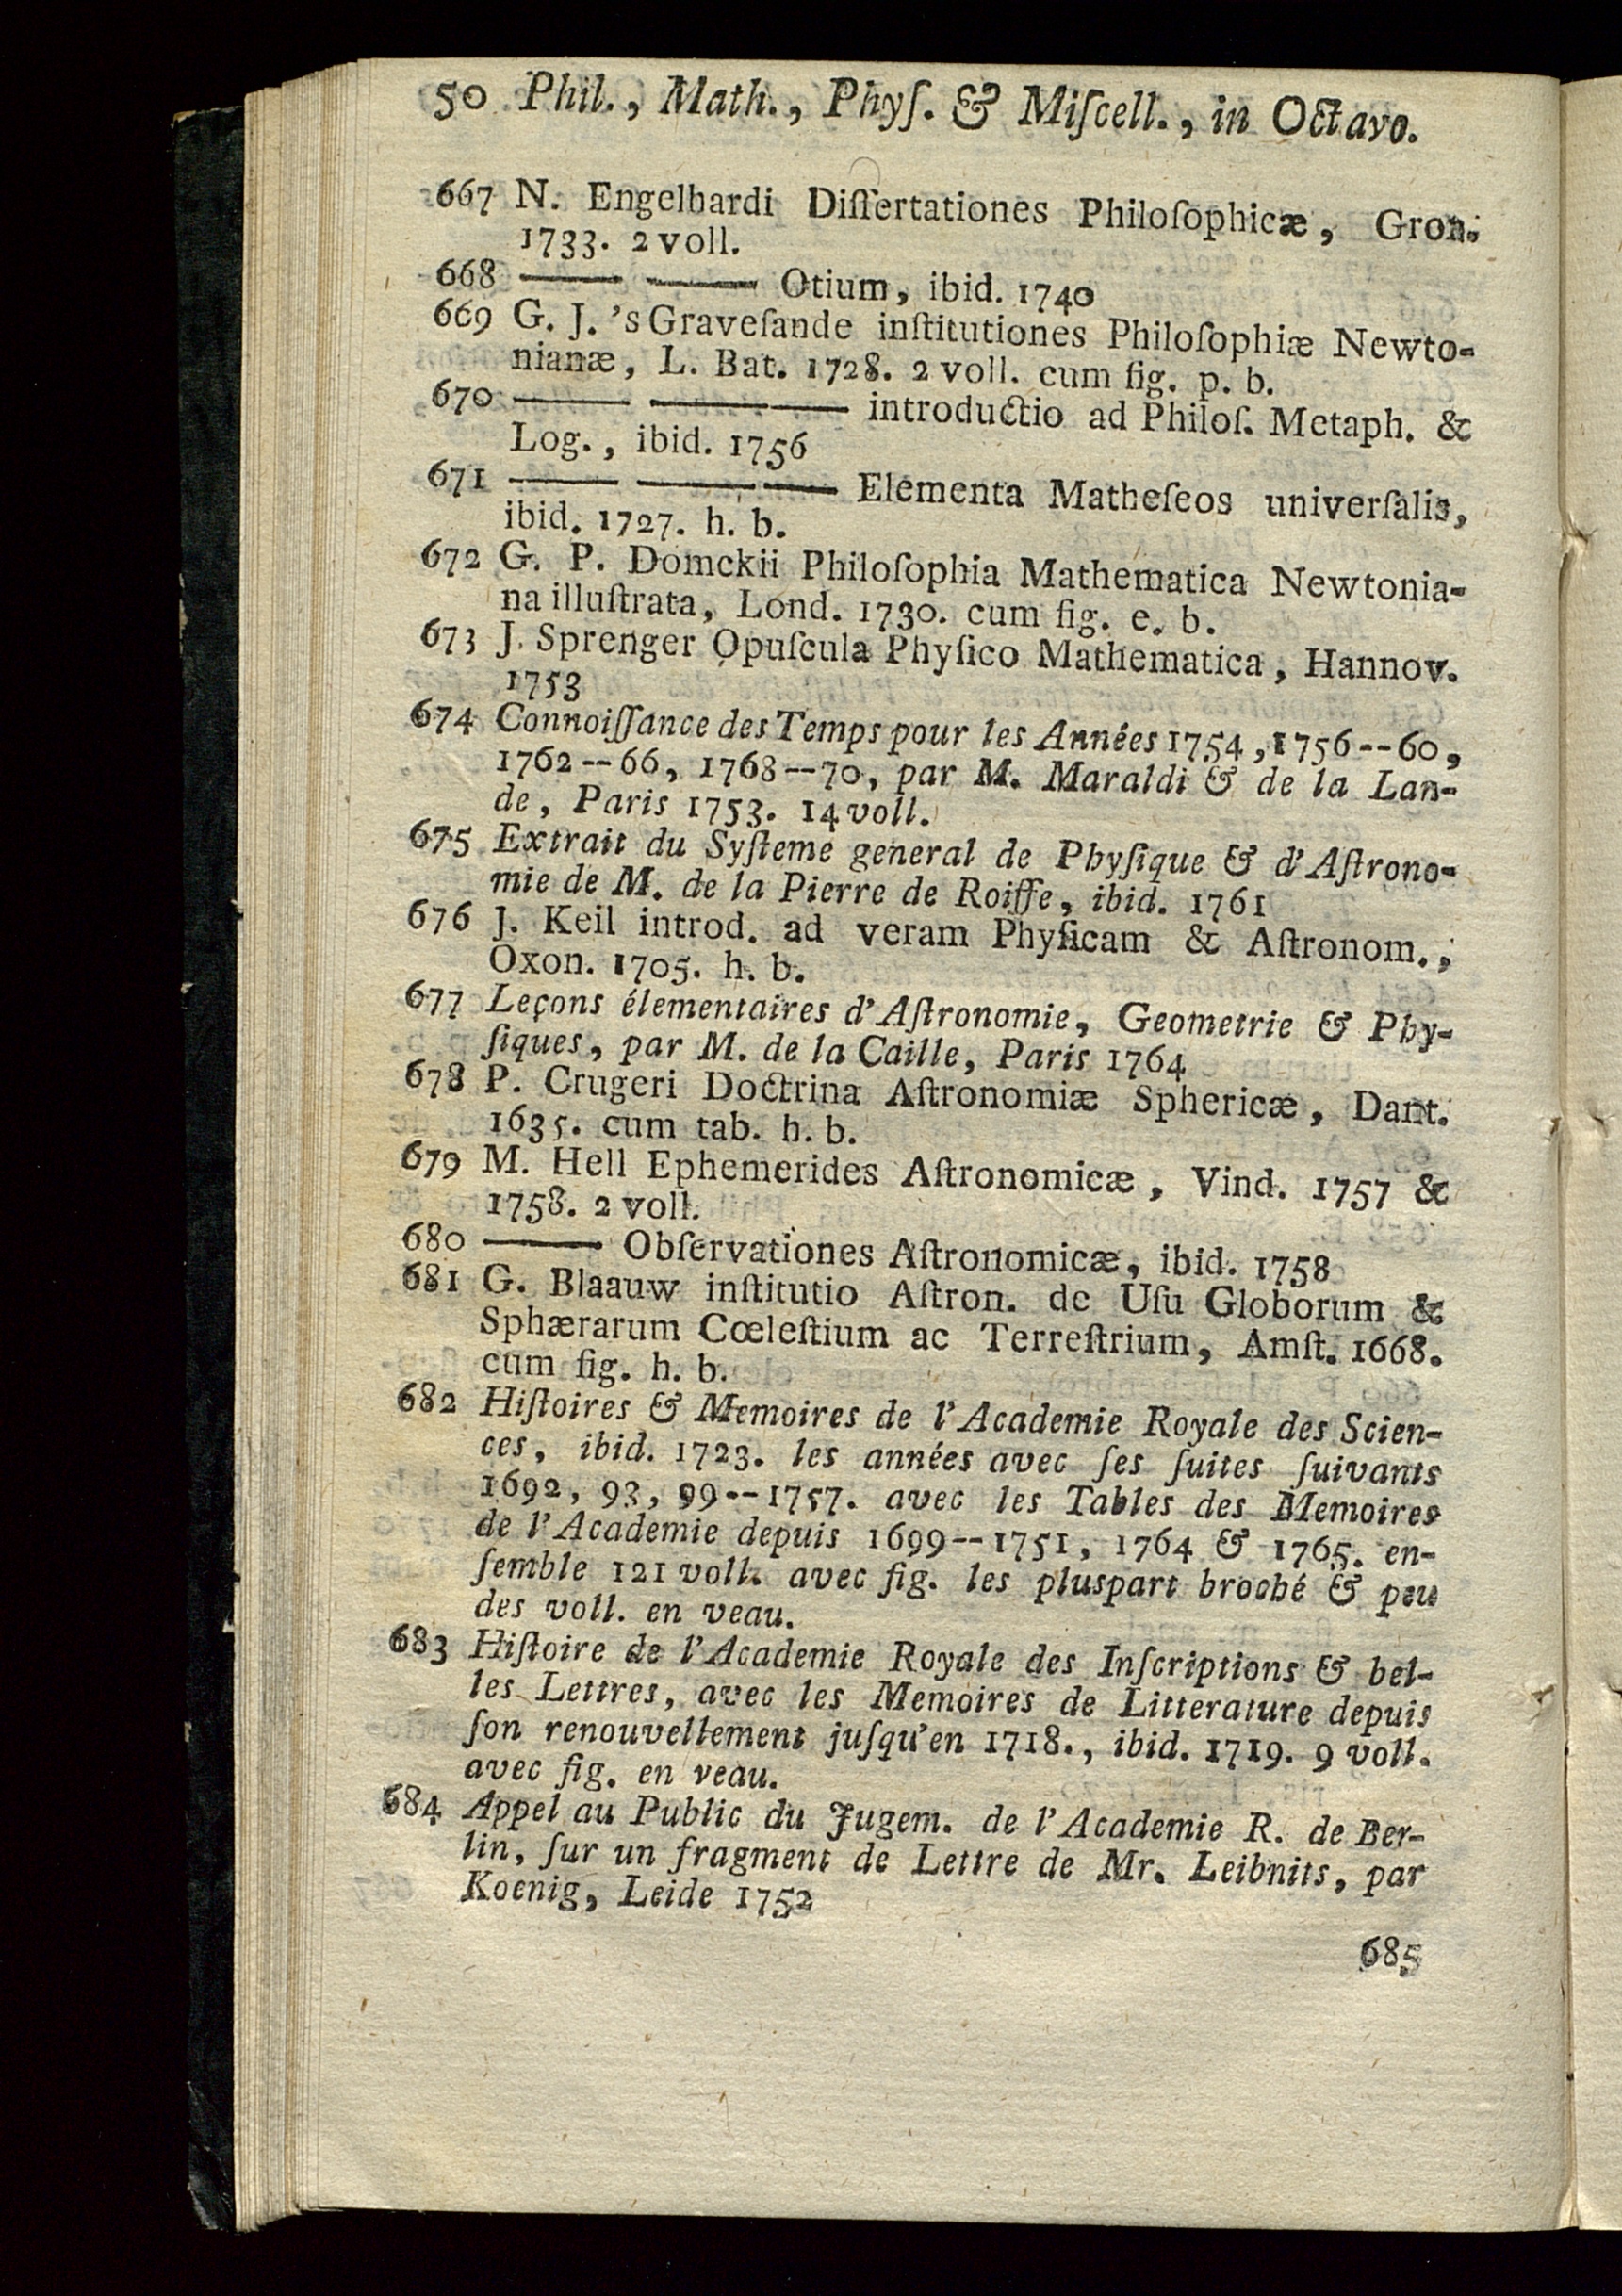 50 Phil., Math., Phyſ. & Miſcell., in Octavo.
667 N. Engelhardi Diſſertationes Philoſophicæ, Gron.
1733. 2 voll.
668 —— —— Otium, ibid. 1740
669 G. J. 's Graveſande inſtitutiones Philoſophiæ Newto-
nianæ, L. Bat. 1728. 2 voll. cum fig. p. b.
670 —— ———— introductio ad Philoſ. Metaph. &
Log., ibid. 1756
671 —— ———— Elementa Matheſeos univerſalis,
ibid. 1727. h. b.
672 G. P. Domckii Philoſophia Mathematica Newtonia-
na illuſtrata, Lond. 1730. cum fig. e. b.
673 J. Sprenger Opuſcula Phyſico Mathematica, Hannov.
1753
674 Connoiſſance des Temps pour les Années 1754, 1756--60,
1762--66, 1768--70, par M. Maraldi & de la Lan-
de, Paris 1753. 14 voll.
675 Extrait du Syſteme general de Phyſique & d'Aſtrono-
mie de M. de la Pierre de Roiffe, ibid. 1761
676 J. Keil introd. ad veram Phyſicam & Aſtronom.,
Oxon. 1705. h. b.
677 Leçons élementaires d'Aſtronomie, Geometrie & Phy-
ſiques, par M. de la Caille, Paris 1764
678 P. Crugeri Doctrina Aſtronomiæ Sphericæ, Dant.
1635. cum tab. h. b.
679 M. Hell Ephemerides Aſtronomicæ, Vind. 1757 &
1758. 2 voll.
680 —— Obſervationes Aſtronomicæ, ibid. 1758
681 G. Blaauw inſtitutio Aſtron. de Uſu Globorum &
Sphærarum Cœleſtium ac Terreſtrium, Amſt. 1668.
cum fig. h. b.
682 Hiſtoires & Memoires de l'Academie Royale des Scien-
ces, ibid. 1723. les années avec ſes ſuites ſuivants
1692, 93, 99--1757. avec les Tables des Memoires
de l'Academie depuis 1699--1751, 1764 & 1765. en-
ſemble 121 voll. avec fig. les pluspart broché & peu
des voll. en veau.
683 Hiſtoire de l'Academie Royale des Inſcriptions & bel-
les Lettres, avec les Memoires de Litterature depuis
ſon renouvellement juſqu'en 1718., ibid. 1719. 9 voll.
avec fig. en veau.
684 Appel au Public du Jugem. de l'Academie R. de Ber-
lin, ſur un fragment de Lettre de Mr. Leibnits, par
Koenig, Leide 1752
685